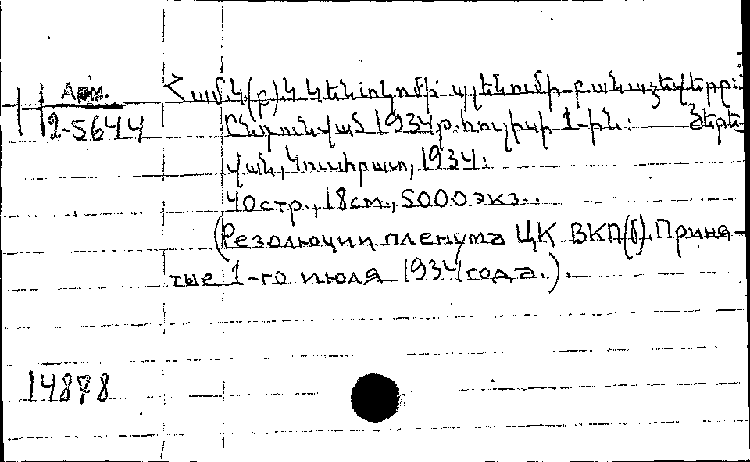 Арм.
2-5644
Համկ(բ)Կ Կենտկոմի պլենումի բանաձևերը:
Ընդունված 1934թ. հուլիսի 1-ին: Յերե-
վան, Կուսհրատ, 1934.
40стр., 18см., 5000экз..
(Резолюции пленума ЦК ВКП(б). Приня-
тые 1-го июля 1934 года.).
14878